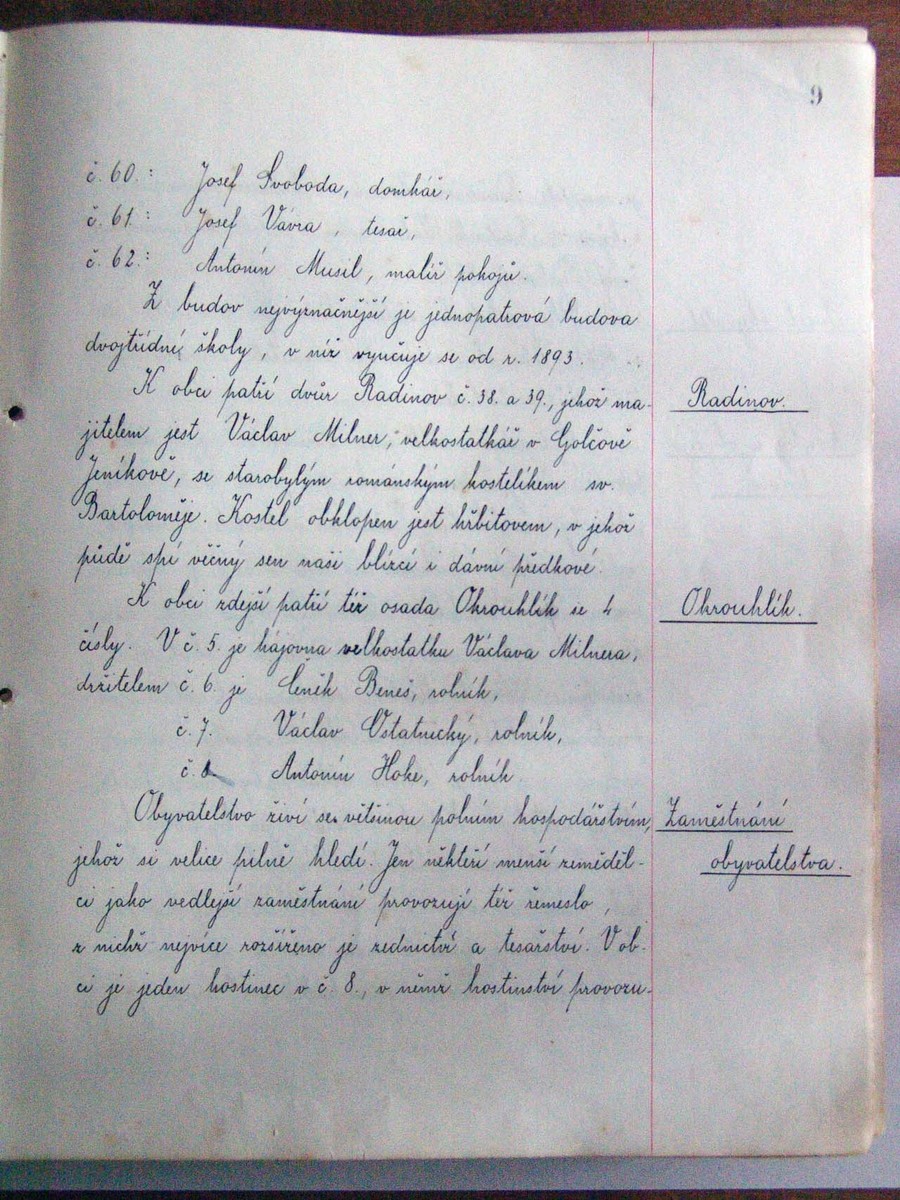 9
č. 60.: Josef Svoboda, domkář,
č. 61: Josef Vávra, tesař,
č. 62: Antonín Musil, malíř pokojů.
Z budov nejvýznačnější je jednopatrová budova
dvojtřídní školy, v níž vyučuje se od r. 1893.
K obci patří dvůr Radinov č. 38. a 39., jehož ma-
Radinov.
jitelem jest Václav Milner, velkostatkář v Golčově
Jeníkově, se starobylým románským kostelíkem sv.
Bartoloměje. Kostel obklopen jest hřbitovem, v jehož
půdě spí věčný sen naši blízcí i dávní předkové.
K obci zdejší patří též osada Okrouhlík se 4
Okrouhlík.
čísly. V č. 5. je hájovna velkostatku Václava Milnera,
držitelem č. 6. je Čeněk Beneš, rolník,
č. 7. Václav Ostatnický, rolník,
č. Antonín Hoke, rolník.
Obyvatelstvo živí se většinou polním hospodářstvím,
Zaměstnání
jehož si velice pilně hledí. Jen někteří menší zeměděl-
obyvatelstva.
ci jako vedlejší zaměstnání provozují též řemeslo,
z nichž nejvíce rozšířeno je zednictví a tesařství. V ob-
ci je jeden hostinec v č. 8., v němž hostinství provozu-